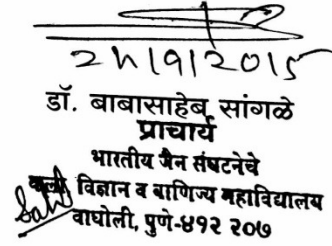 24/9/2015
डॉ. बाबासाहेब सांगळे
प्राचार्य
भारतीय जैन संघटनेचे
कला विज्ञान व वाणिज्य महाविद्यालय
वाघोली, पुणे-४१२ २०७